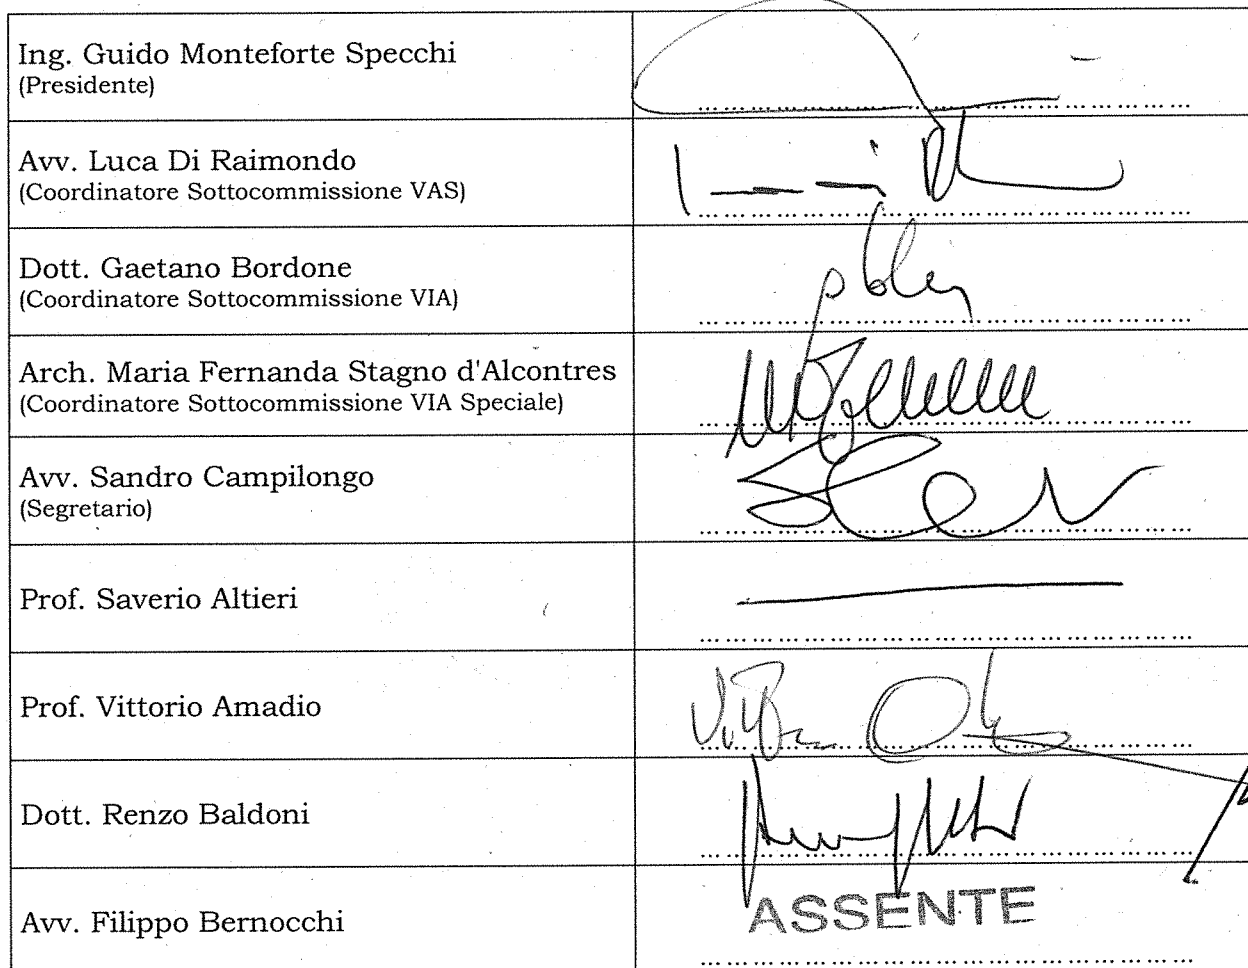 Ing. Guido Monteforte Specchi
(Presidente)
Avv. Luca Di Raimondo
(Coordinatore Sottocommissione VAS)
Dott. Gaetano Bordone
(Coordinatore Sottocommissione VIA)
Arch. Maria Fernanda Stagno d'Alcontres
(Coordinatore Sottocommissione VIA Speciale)
Avv. Sandro Campilongo
(Segretario)
Prof. Saverio Altieri
Prof. Vittorio Amadio
Dott. Renzo Baldoni
Avv. Filippo Bernocchi
ASSENTE